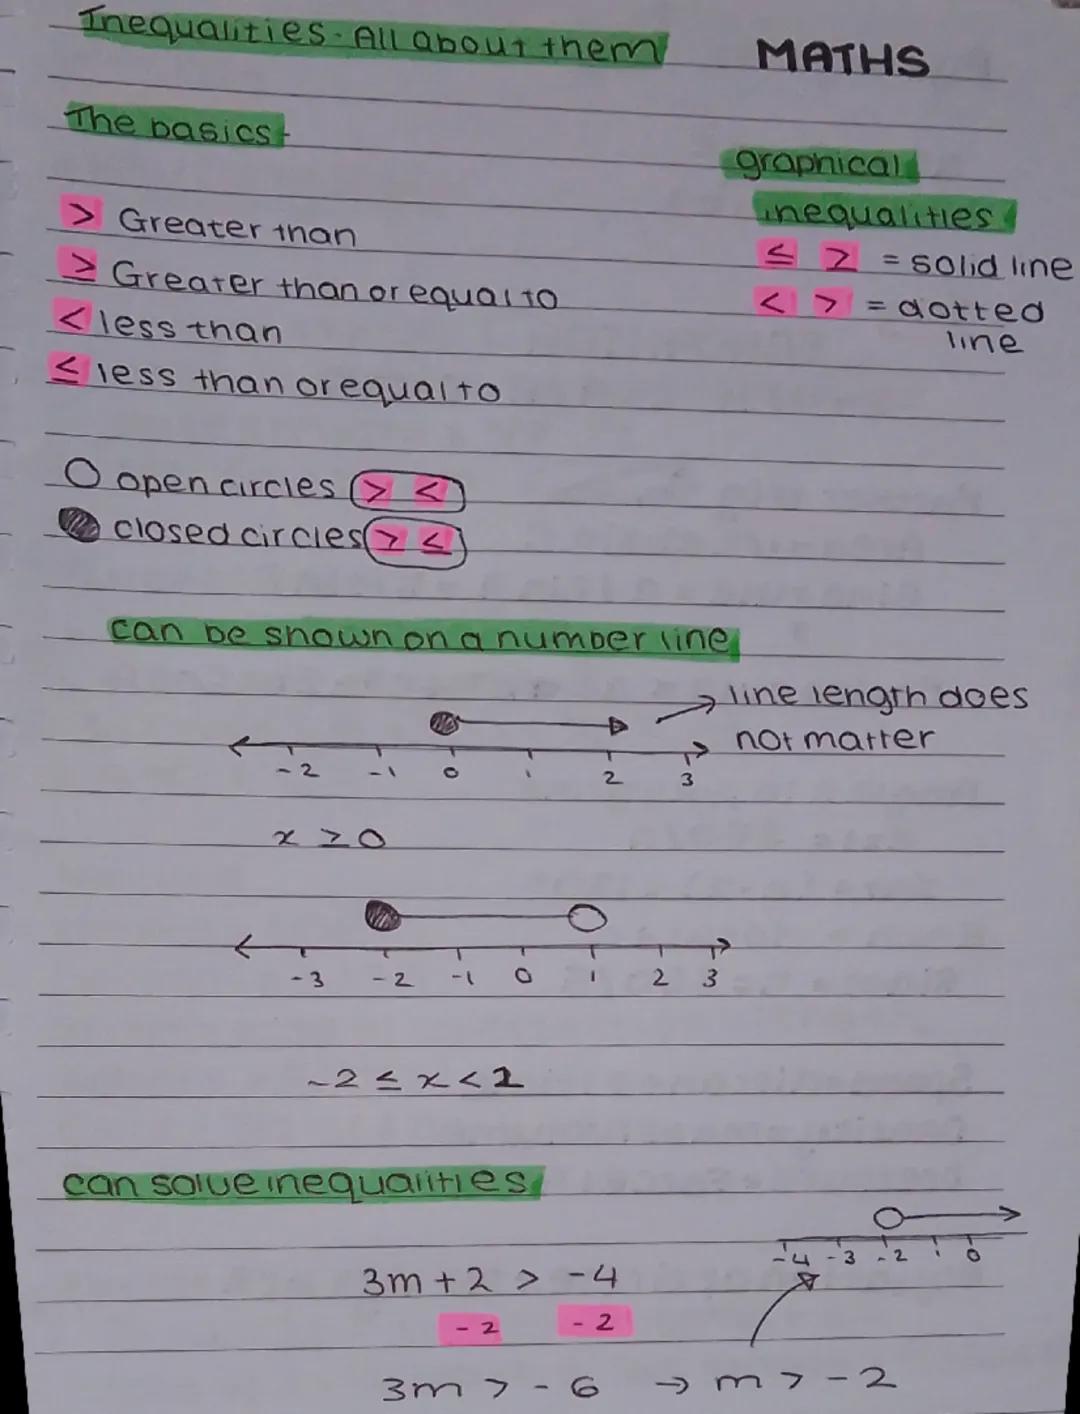 Inequalities - All about them
MATHS
The basics -
> Greater than
≥ Greater than or equal to
< less than
≤ less than or equal to
graphical
inequalities
≤ ≥ = solid line
< > = dotted
line
O open circles > <
closed circles ≥ ≤
can be shown on a number line
line length does
not matter
-2 -1 0 1 2 3
x ≥ 0
-3 -2 -1 0 1 2 3
can solve inequalities
-4 -3 -2 1 0
3m + 2 > -4
-2 -2
3m > -6 → m > -2